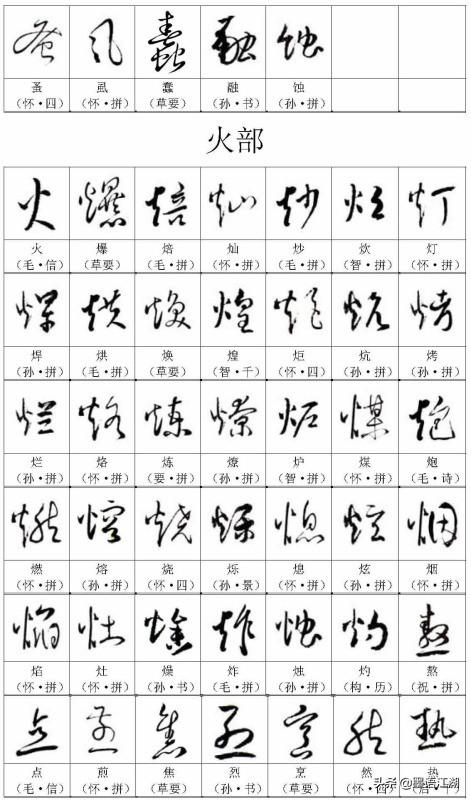 蚤 虱 蠢 融 蚀
（怀·四） （怀·拼） （草要） （孙·书） （孙·拼）
火部
火 爆 焙 灿 炒 炊 灯
（毛·信） （草要） （毛·拼） （怀·拼） （毛·拼） （智·拼） （怀·拼）
焊 烘 焕 煌 炬 炕 烤
（孙·拼） （毛·拼） （草要） （智·千） （怀·四） （孙·拼） （孙·拼）
烂 烙 炼 燎 炉 煤 炮
（孙·拼） （怀·拼） （要·拼） （孙·拼） （智·拼） （怀·拼） （毛·诗）
燃 熔 烧 烁 熄 炫 烟
（怀·拼） （孙·拼） （怀·四） （孙·景） （怀·拼） （孙·拼） （怀·拼）
焰 灶 燥 炸 烛 灼 熬
（怀·拼） （怀·拼） （孙·书） （毛·拼） （孙·拼） （构·历） （祝·拼）
点 煎 焦 烈 烹 然 热
（毛·信） （怀·拼） （草要） （孙·书） （草要）
头条 @墨道江湖